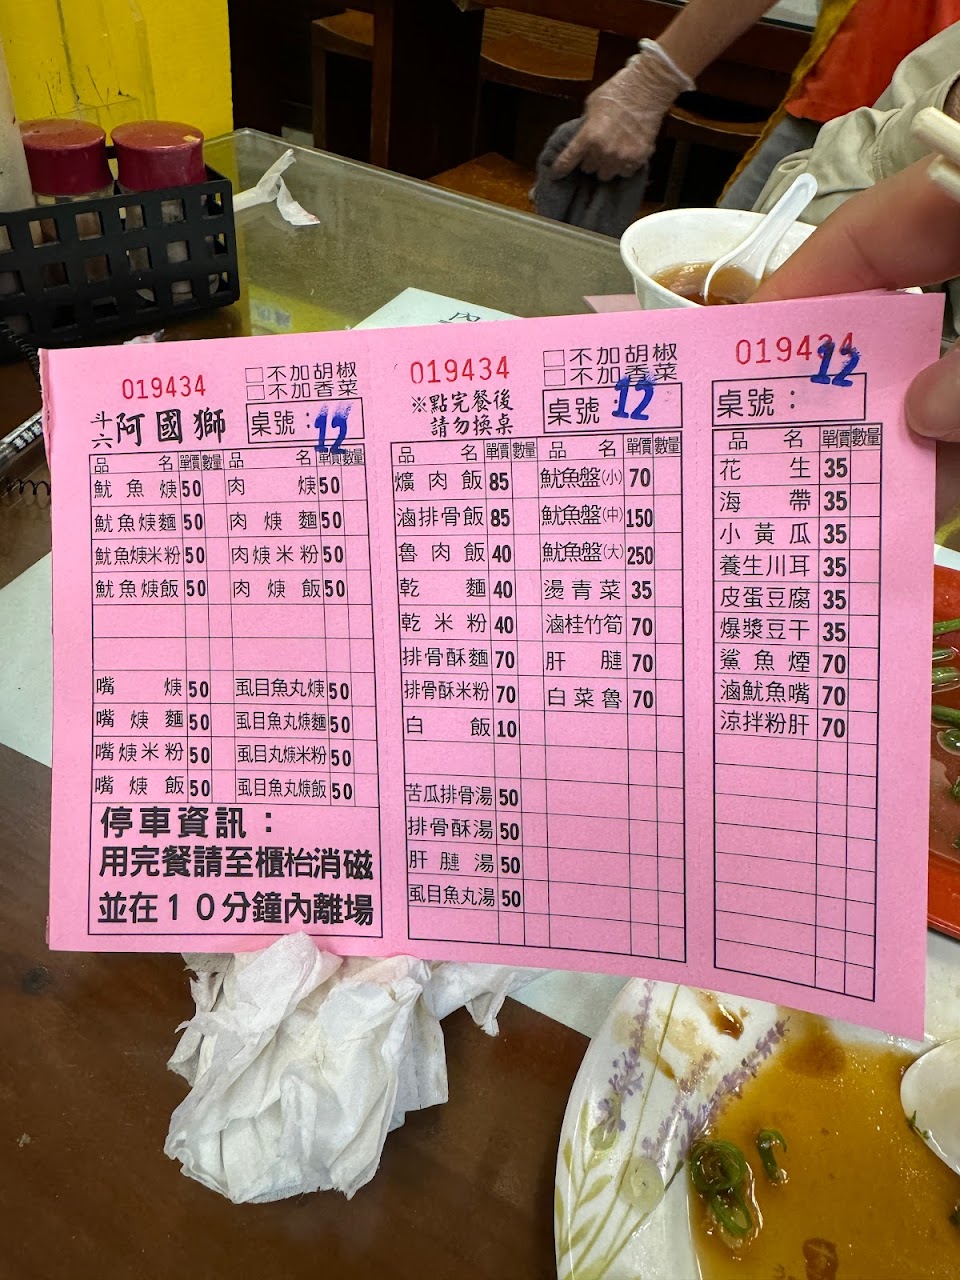 019434
□不加胡椒
□不加香菜
斗六阿國獅
桌號：12
品名 單價 數量 品名 單價 數量
魷魚焿 50 肉焿 50
魷魚焿麵 50 肉焿麵 50
魷魚焿米粉 50 肉焿米粉 50
魷魚焿飯 50 肉焿飯 50
嘴焿 50 虱目魚丸焿 50
嘴焿麵 50 虱目魚丸焿麵 50
嘴焿米粉 50 虱目丸焿米粉 50
嘴焿飯 50 虱目魚丸焿飯 50
停車資訊：
用完餐請至櫃枱消磁
並在１０分鐘內離場
019434
□不加胡椒
□不加香菜
※點完餐後
請勿換桌
桌號：12
品名 單價 數量 品名 單價 數量
爌肉飯 85 魷魚盤(小) 70
滷排骨飯 85 魷魚盤(中) 150
魯肉飯 40 魷魚盤(大) 250
乾麵 40 燙青菜 35
乾米粉 40 滷桂竹筍 70
排骨酥麵 70 肝膅 70
排骨酥米粉 70 白菜魯 70
白飯 10
苦瓜排骨湯 50
排骨酥湯 50
肝膅湯 50
虱目魚丸湯 50
019434
桌號：12
品名 單價 數量
花生 35
海帶 35
小黃瓜 35
養生川耳 35
皮蛋豆腐 35
爆漿豆干 35
鯊魚煙 70
滷魷魚嘴 70
涼拌粉肝 70